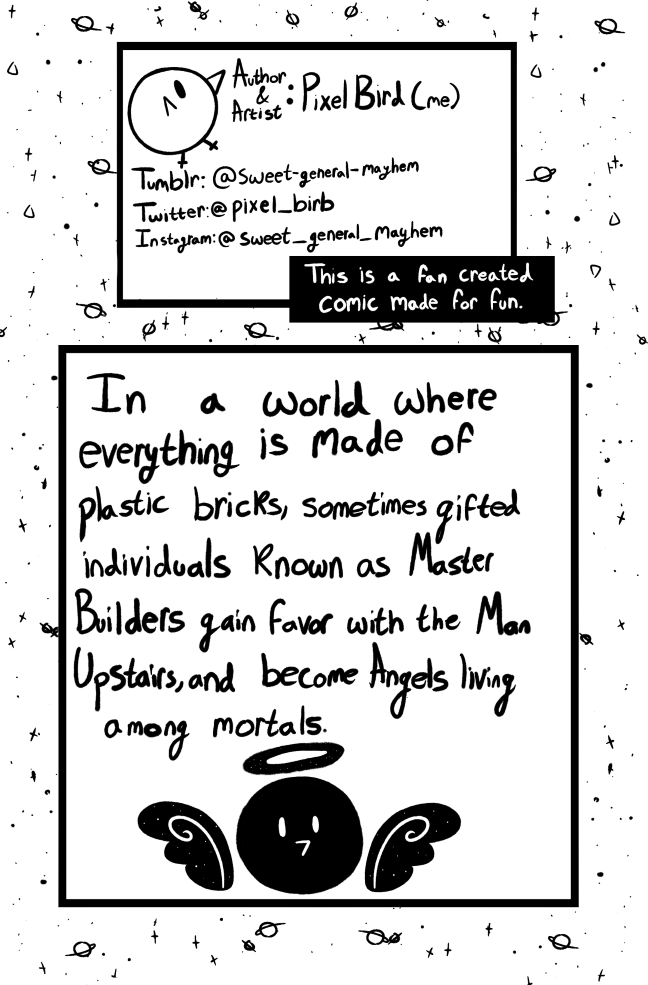 Author
&
Artist : Pixel Bird (me)
Tumblr: @sweet-general-mayhem
Twitter:@ pixel_birb
Instagram:@ sweet_general_mayhem
This is a fan created
comic made for fun.
In a world where
everything is made of
plastic bricks, sometimes gifted
individuals known as Master
Builders gain favor with the Man
Upstairs, and become Angels living
among mortals.